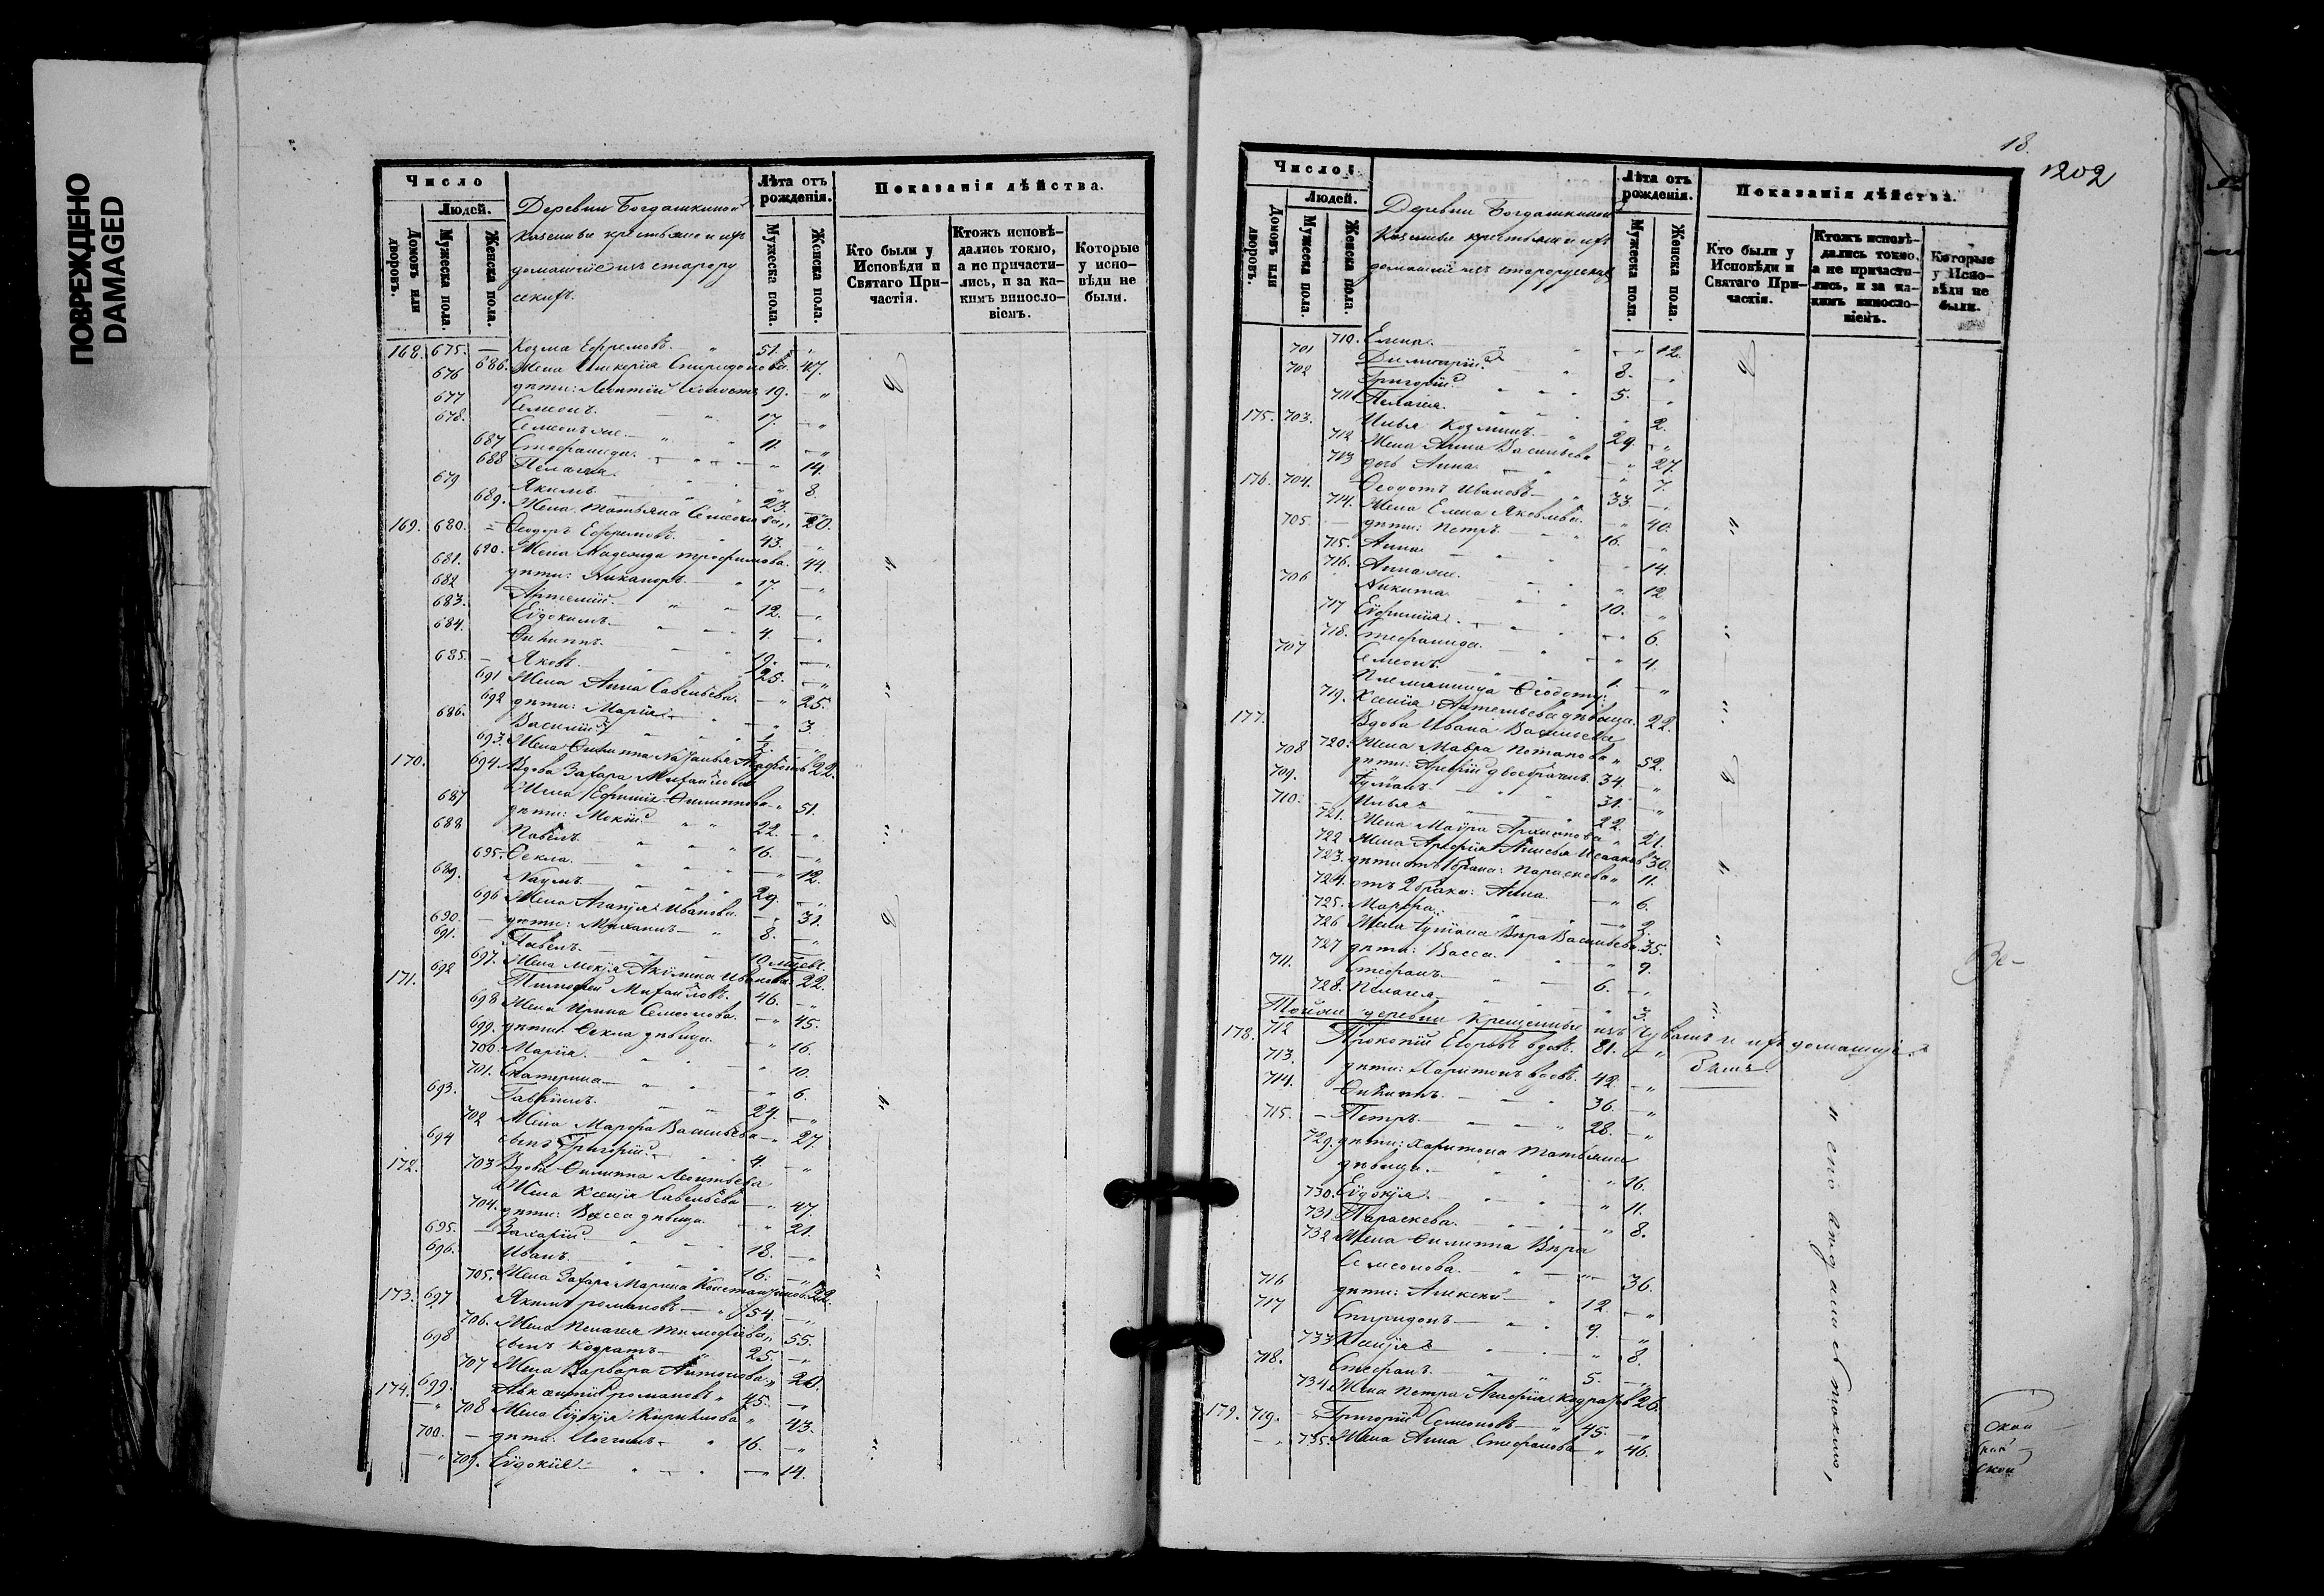 ПОВРЕЖДЕНО
DAMAGED
Число
Людей.
Домовъ или дворовъ.
Мужеска пола.
Женска пола.
Деревни Богдашкиной
казенные крестьяне и ихъ
домашніе изъ старору
скихъ.
Лѣта отъ рожденія.
Мужеска пола.
Женска пола.
Показанія дѣйства.
Кто были у Исповѣди и Святаго Причастія.
Ктожъ исповѣдались токмо, а не причастились, и за какимъ винословіемъ.
Которые у исповѣди не были.
168. 675. — Козма Ефремовъ. 51. "
686. Жена Гликерія Спиридонова. 47.
676 дѣти: Леонтій холостъ 19. — "
677 Семеонъ. 17. — "
678. Семеонъ же. 11. — "
687 Стефанида. — " 14.
688 Пелагея. " 8.
679 Якимъ 23. — "
689. Жена Татьяна Семеонова " 20.
169. 680. — Ѳеодоръ Ефремовъ. 43. "
690. Жена Надежда Трофимова. 44.
681. дѣти: Никаноръ — 17. — "
682 Артемій. 12. — "
683. Еѵдокимъ. 4. — "
684. Филиппъ. 19. — "
685. — Яковъ 25. — "
691 Жена Анна Савельева. — " 25.
692 дѣти: Марія — " 3.
686. Василій ½ "
693. Жена Филиппа Наталья 22.
170. 694 Вдова Захара Михайлова
Жена Ефимія Филиппова — " 51.
687 дѣти: Мокій 22. — "
688 Павелъ 16. — "
695. Ѳекла. — " 12.
689. Наумъ 29. — "
696 Жена Агапія Иванова. — " 31.
690. — дѣти: Михаилъ — " 8. — "
691. Павелъ. 10 мѣсяц.
697. Жена Мокія Акѵлина Иванова. 22.
171. 692 Тимофей Михайловъ. 46. — "
698 Жена Ирина Семеонова. — " 45.
699. дѣти: Ѳекла дѣвица. — " 16.
700. Марія. " 10.
701. Екатерина — " 6.
693. Гавріилъ. 24. — "
702 Жена Марфа Васильева — " 27.
694 сынъ Григорій. 4. — "
172. 703 Вдова Филиппа Леонтьева
Жена Ксенія Савельева — " 47.
704. дѣти: Васса дѣвица. — " 21.
695. — Захарій 18. — "
696. Иванъ. 16. — "
705. Жена Захара Марина Константинов. 22.
173. 697 Якимъ Романовъ — " 54. — "
706. Жена Пелагея Тимофеева " 55.
698 сынъ Кодратъ — 25. — "
707 Жена Варвара Антонова. " 20.
174. 699. Авксентій Романовъ " 45. — "
— " 708 Жена Еѵдокія Кирилова " 43.
700. — дѣти: Логгинъ — " 16. — "
— " 709. Еѵдокія — " 14.
18.
1202
Число
Людей.
Домовъ или дворовъ.
Мужеска пола.
Женска пола.
Деревни Богдашкиной
казенные крестьяне и ихъ
домашніе изъ старорусскихъ
Лѣта отъ рожденія.
Мужеска пола.
Женска пола.
Показанія дѣйства.
Кто были у Исповѣди и Святаго Причастія.
Ктожъ исповѣдались токмо, а не причастились, и за какимъ винословіемъ.
Которые у Исповѣди не были.
710. Елена. — " 12.
701 Димитрій. 8. — "
702 Григорій. 5. — "
711 Пелагея. " 2.
175. 703. Илья Козминъ. 29. — "
712 Жена Анна Васильева — " 27.
713 дочь Анна. — " 7.
176. 704. Ѳеодотъ Ивановъ — 33. — "
714. Жена Елена Яковлева. — " 40.
705. — дѣти: Петръ — 16. — "
715. Анна " 14.
716. Анна же. " 12
706 Никита 10. — "
717 Еѵфимія. — " 6.
718. Стефанида. — " 4.
707 Семеонъ. 1. — "
Племянница Ѳеодоту:
719. Ксенія Антельева дѣвица. 22.
177. Вдова Ивана Васильева
720. Жена Мавра Потапова " 52.
708 дѣти: Арефій двоебрачн. 34. — "
709. Туліанъ 31. — "
710. — Илья 22. — "
721. Жена Маѵра Архипова " 21.
722 Жена Арефія Исааков. 30.
723. дѣти отъ 1 брака: Параскева " 11.
724. отъ 2 брака: Анна. — " 6.
725. Марфа — " 2.
726 Жена Вѣра Васильева. 35.
727 дѣти: Васса. " 9.
711. Стефанъ. — 6. — "
728. Пелагея — " 3.
Той же деревни крещенные изъ Чувашъ и ихъ домашніе.
178. 712 Прокопій Егоровъ вдовъ. 81. — "
713. дѣти: Харитонъ вдовъ. 42. — "
714. Филиппъ. — 36. — "
715. — Петръ. — 28. — "
729. дѣти: Харитона Татьяна
дѣвица. — " 16.
730. Еѵдокія. " 11.
731 Параскева. — " 8.
732 Жена Филиппа Вѣра
Семеонова. — 36.
716 дѣти: Алексей — 12. — "
717 Спиридонъ — 9. — "
733 Ксенія " 8.
718. Стефанъ. 5. — "
734 Жена Петра Агафія Кодратов. 26.
179. 719. — Григорій Семеоновъ — " 45. — "
— " 735. Жена Анна Стефанова — " 46.